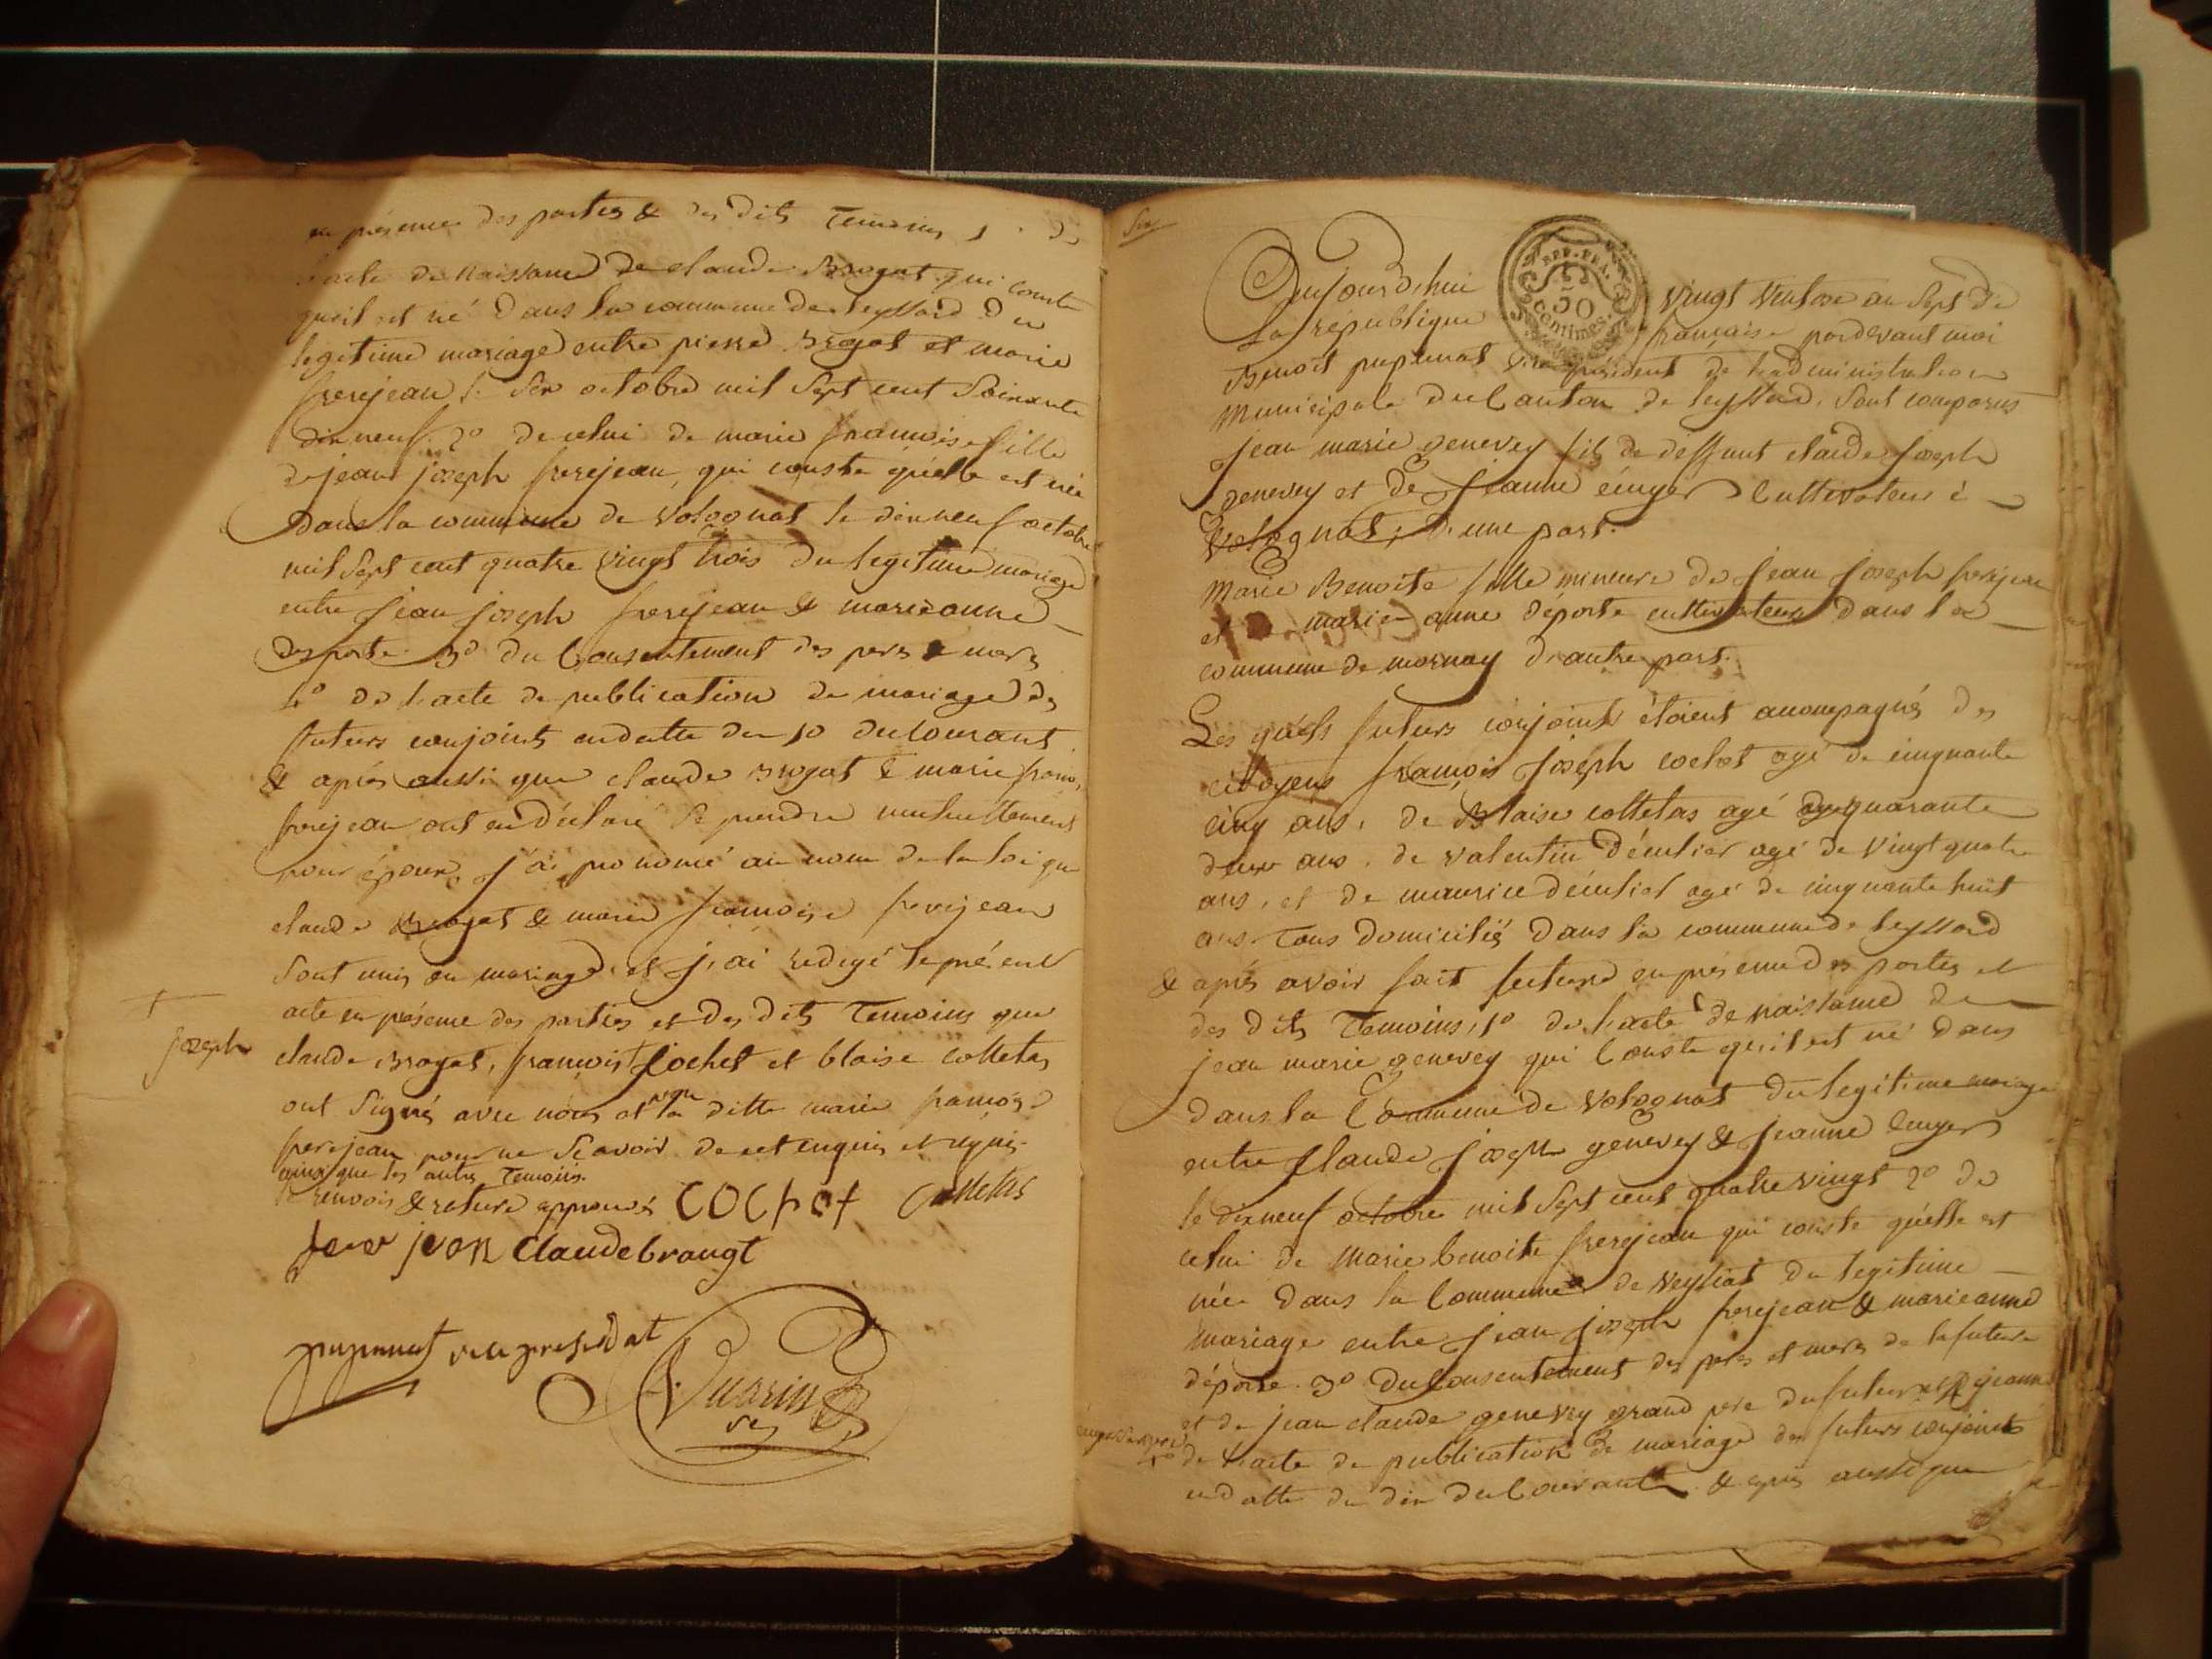 en présence des parties & des dits Temoins 1° de
l'acte de Naissance de claude Brogat qui conste
qu'il est né dans la commune de leyssard du
legitime mariage entre pierre Brogat et marie
frerejean le Six octobre mil Sept cent Soixante
dix neuf. 2° de celui de marie francoise fille
de jean joseph frerejean, qui conste qu'elle est née
dans la commune de Volognat le dix neuf octobre
mil Sept cent quatre vingt trois du legitime mariage
entre jean joseph frerejean & marie anne
desporte 3° du Consentement des pere & mere
4° de l'acte de publication de mariage des
futurs conjoints en datte du 10 du Courant
& après aussi que claude Brogat & marie franc.
frerejean ont eu déclaré Se prendre mutuellement
pour époux, j'ai prononcé au nom de la loi que
claude Brogat & marie francoise frerejean
Sont unis en mariage et j'ai redigé le présent
acte en présence des parties et des dits Temoins que
joseph
claude Brogat, françois Cochet et blaise colletas
ont Signés avec nous et non la ditte marie francoise
frerejean pour ne Scavoir de cet enquis et réquis.
ainsi que les autres Temoins.
renvois & rature approuvé COChet Colletas
frere jean Claude braugt
pupunat vice president
Vuarin
Six
REP. FRA.
50
centimes.
Aujourdhui vingt Ventose an Sept de
La république française pardevant moi
Benoit pupunat vice président de l'administration
Municipale du Canton de leyssard. Sont comparus
Jean marie genevey fils de deffunt claude Joseph
genevey et de Jeanne Cultivateur à
Volognat; d'une part.
Marie Benoite fille mineure de Jean joseph frerejean
et marie anne déporte cultivateurs dans la
commune de mornay d'autre part.
Les quels futurs conjoints étaient accompagnés des
citoyens françois Joseph cochet agé de cinquante
cinq ans, de Blaise colletas agé de quarante
deux ans, de valentin agé de Vingt quatre
ans, et de maurice agé de cinquante huit
ans Tous domiciliés dans la commune de leyssard
& après avoir fait lecture en présence des parties et
des dits Temoins, 1° de l'acte de naissance de
jean marie genevey qui Conste qu'il est né dans
dans la Commune de Volognat du legitime mariage
entre Claude joseph genevey & Jeanne
le dix neuf octobre mil Sept cent quatre vingt 2° de
celui de Marie benoite frerejean qui conste qu'elle est
née dans la Commune de Veyziat du legitime
mariage entre jean joseph frerejean & marie anne
déporte. 3° du Consentement des peres et mere de la future
et de jean claude genevey grand pere du futur et jeanne
sa mere 4°
de l'acte de publication de mariage des futurs conjoints
en datte du dix du Courant. & après aussi que